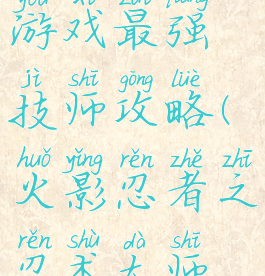 yóu xì zuì qiáng
游戏最强
jì shī gōng lüè
技师攻略(
huǒ yǐng rěn zhě zhī
火影忍者之
rěn shù dà shī
忍术大师